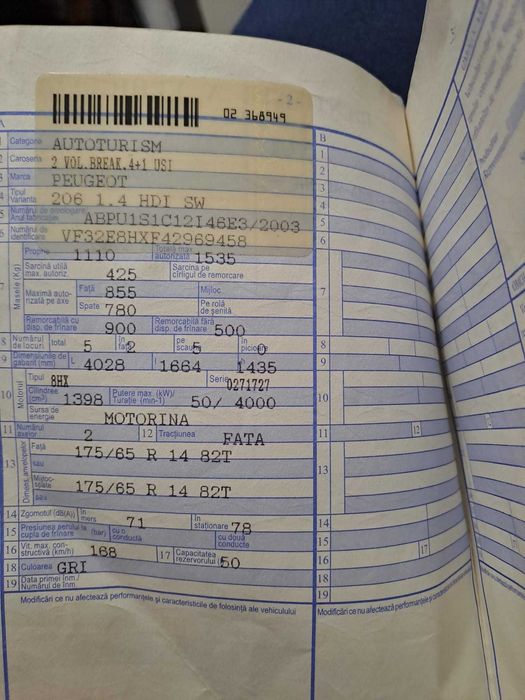 - 2 -
02 368949
A
B
1 Categoria AUTOTURISM
2 Caroseria 2 VOL.BREAK.4+1 USI
3 Marca PEUGEOT
4 Tipul Varianta 206 1.4 HDI SW
5 Numărul de omologare Anul fabricației ABPU1S1C12I46E3/2003
6 Numărul de identificare VF32E8HXF42969458
7 Masele (Kg) Proprie 1110 Totală max. autorizată 1535
Sarcină utilă max. autoriz. 425 Sarcina pe cîrligul de remorcare
Maximă autorizală pe axe Față 855 Mijloc
Spate 780 Pe rolă de șenilă
Remorcabilă cu disp. de frînare 900 Remorcabilă fără disp. de frînare 500
8 Numărul de locuri total 5 în față 2 pe scaun 5 în picioare 0
9 Dimensiunile de gabarit (mm) L 4028 l 1664 1435
10 Motorul Tipul 8HX Seria 0271727
Cilindree (cm³) 1398 Putere max. (kW)/ Turație (min-1) 50/ 4000
Sursa de energie MOTORINA
11 Numărul axelor 2 12 Tracțiunea FATA
13 Dimens. anvelopelor Față 175/65 R 14 82T
sau
Mijloc-spate 175/65 R 14 82T
sau
14 Zgomotul (dB(A)) în mers 71 în staționare 78
15 Presiunea aerului la cupla de frînare (bar) cu o conductă cu două conducte
16 Vit. max. constructivă (km/h) 168 17 Capacitatea rezervorului 50
18 Culoarea GRI
19 Data primei înm./ Numărul de înm.
Modificări ce nu afectează performanțele și caracteristicile de folosință ale vehiculului
1
2
3
4
5
6
7
8
9
10
11 12
13
14
15
16 17
18
19
Modificări ce nu afectează performanțele și caracteristicile